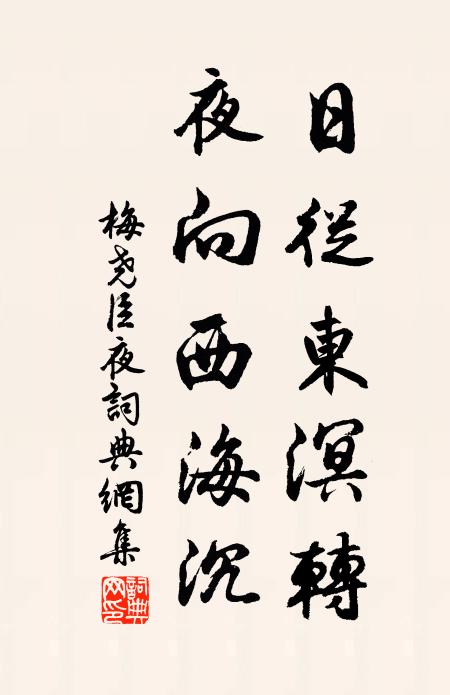 日從東溟轉
夜向西海沉
梅堯臣夜詞典網集
詞典網印